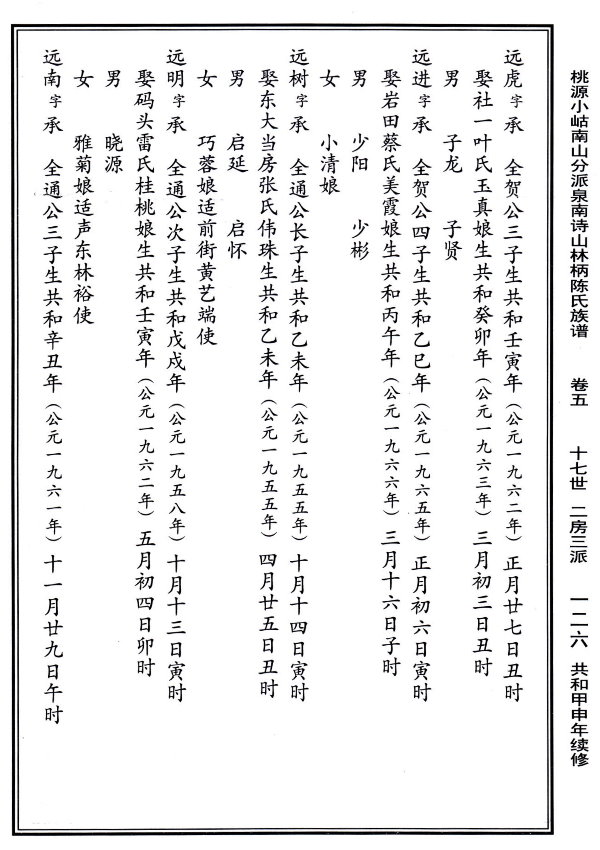 桃源小岵南山分派泉南诗山林柄陈氏族谱 卷五 十七世 二房三派 一二六 共和甲申年续修
远虎字承 全贺公三子生共和壬寅年（公元一九六二年）正月廿七日丑时
娶社一叶氏玉真娘生共和癸卯年（公元一九六三年）三月初三日丑时
男 子龙 子贤
远进字承 全贺公四子生共和乙巳年（公元一九六五年）正月初六日寅时
娶岩田蔡氏美霞娘生共和丙午年（公元一九六六年）三月十六日子时
男 少阳 少彬
女 小清娘
远树字承 全通公长子生共和乙未年（公元一九五五年）十月十四日寅时
娶东大当房张氏伟珠生共和乙未年（公元一九五五年）四月廿五日丑时
男 启延 启怀
女 巧蓉娘适前街黄艺端使
远明字承 全通公次子生共和戊戍年（公元一九五八年）十月十三日寅时
娶码头雷氏桂桃娘生共和壬寅年（公元一九六二年）五月初四日卯时
男 晓源
女 雅菊娘适声东林裕使
远南字承 全通公三子生共和辛丑年（公元一九六一年）十一月廿九日午时